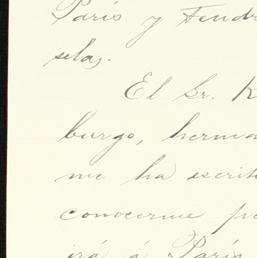 París y Tendr
selas.
El Sr. K
burgo, herma
me ha escrit
convocerme p
irá á París